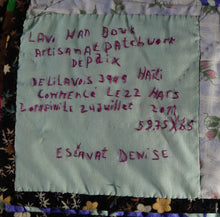 LAVI NAN BOUK
ARTisANAT PATCHWORK
DE PAIX
DELILAVOIS 3909 HAITI
COMMENCÉ LE 22 MARS
24 Juillet 2011
59,75 X 65
ESTAVAT DENISE